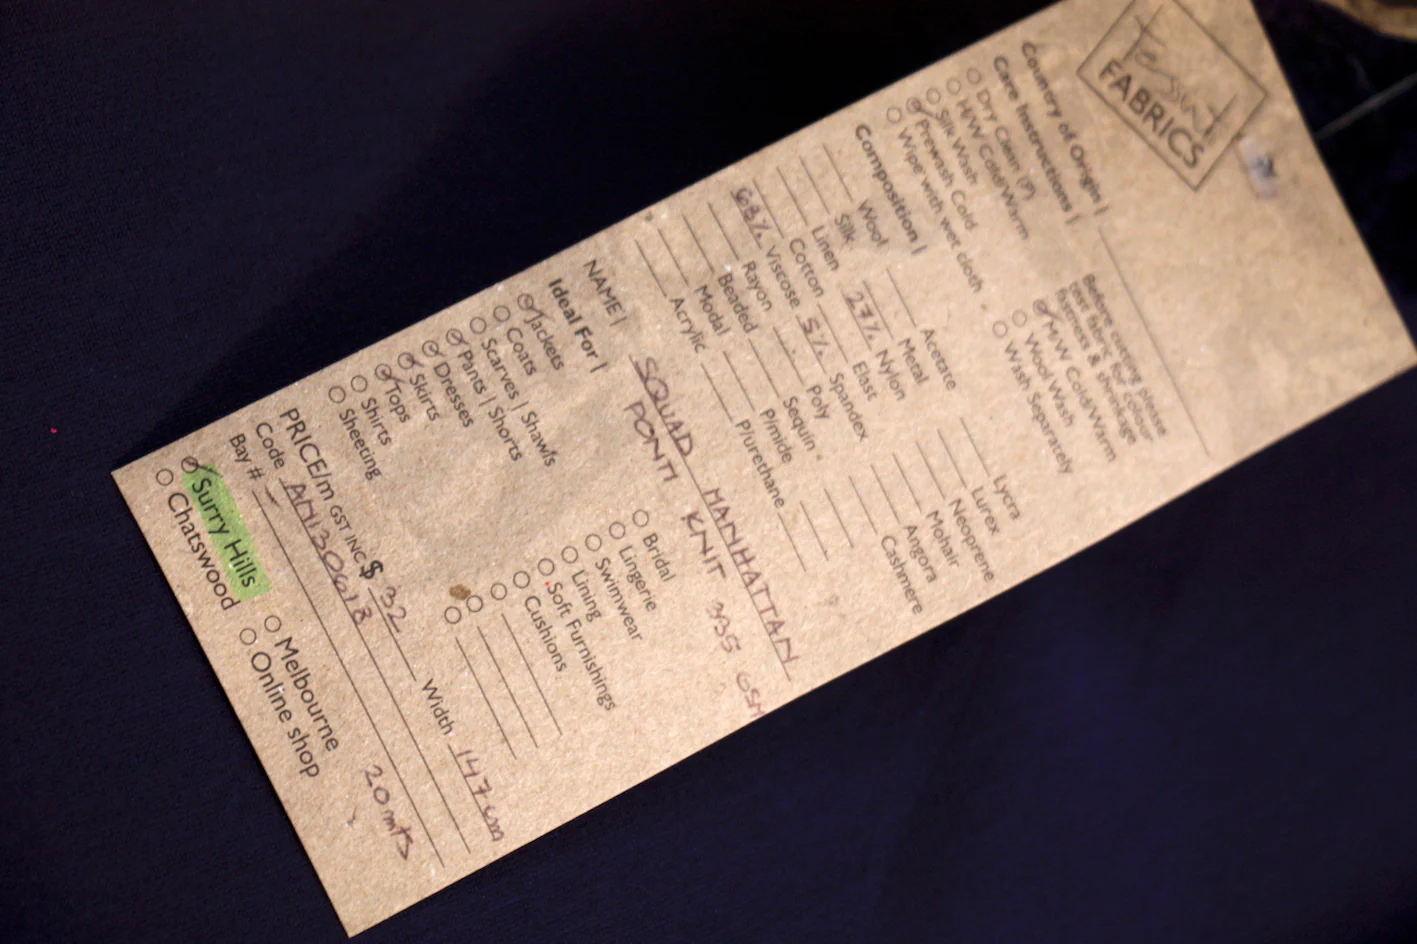 Tessuti
FABRICS
Country of Origin |
Care Instructions |
Before cutting please
test fabric for colour
fastness & shrinkage
Dry Clean (P)
H/W Cold/Warm
Silk Wash
Prewash Cold
Wipe with wet cloth
M/W Cold/Warm
Wool Wash
Wash Separately
Composition |
Wool Acetate Lycra
Silk Metal Lurex
Linen 27% Nylon Neoprene
Cotton Elast Mohair
68% Viscose 5% Spandex Angora
Rayon Poly Cashmere
Beaded Sequin
Modal Pimide
Acrylic Plurethane
NAME | SQUAD MANHATTAN
PONTI KNIT 335 GSM
Ideal For |
Jackets Bridal
Coats Lingerie
Scarves | Shawls Swimwear
Pants | Shorts Lining
Dresses Soft Furnishings
Skirts Cushions
Tops
Shirts
Sheeting
PRICE/m GST INC $ 32 Width 147cm
Code ANI30618
Bay # - 20 mts
Surry Hills Melbourne
Chatswood Online shop